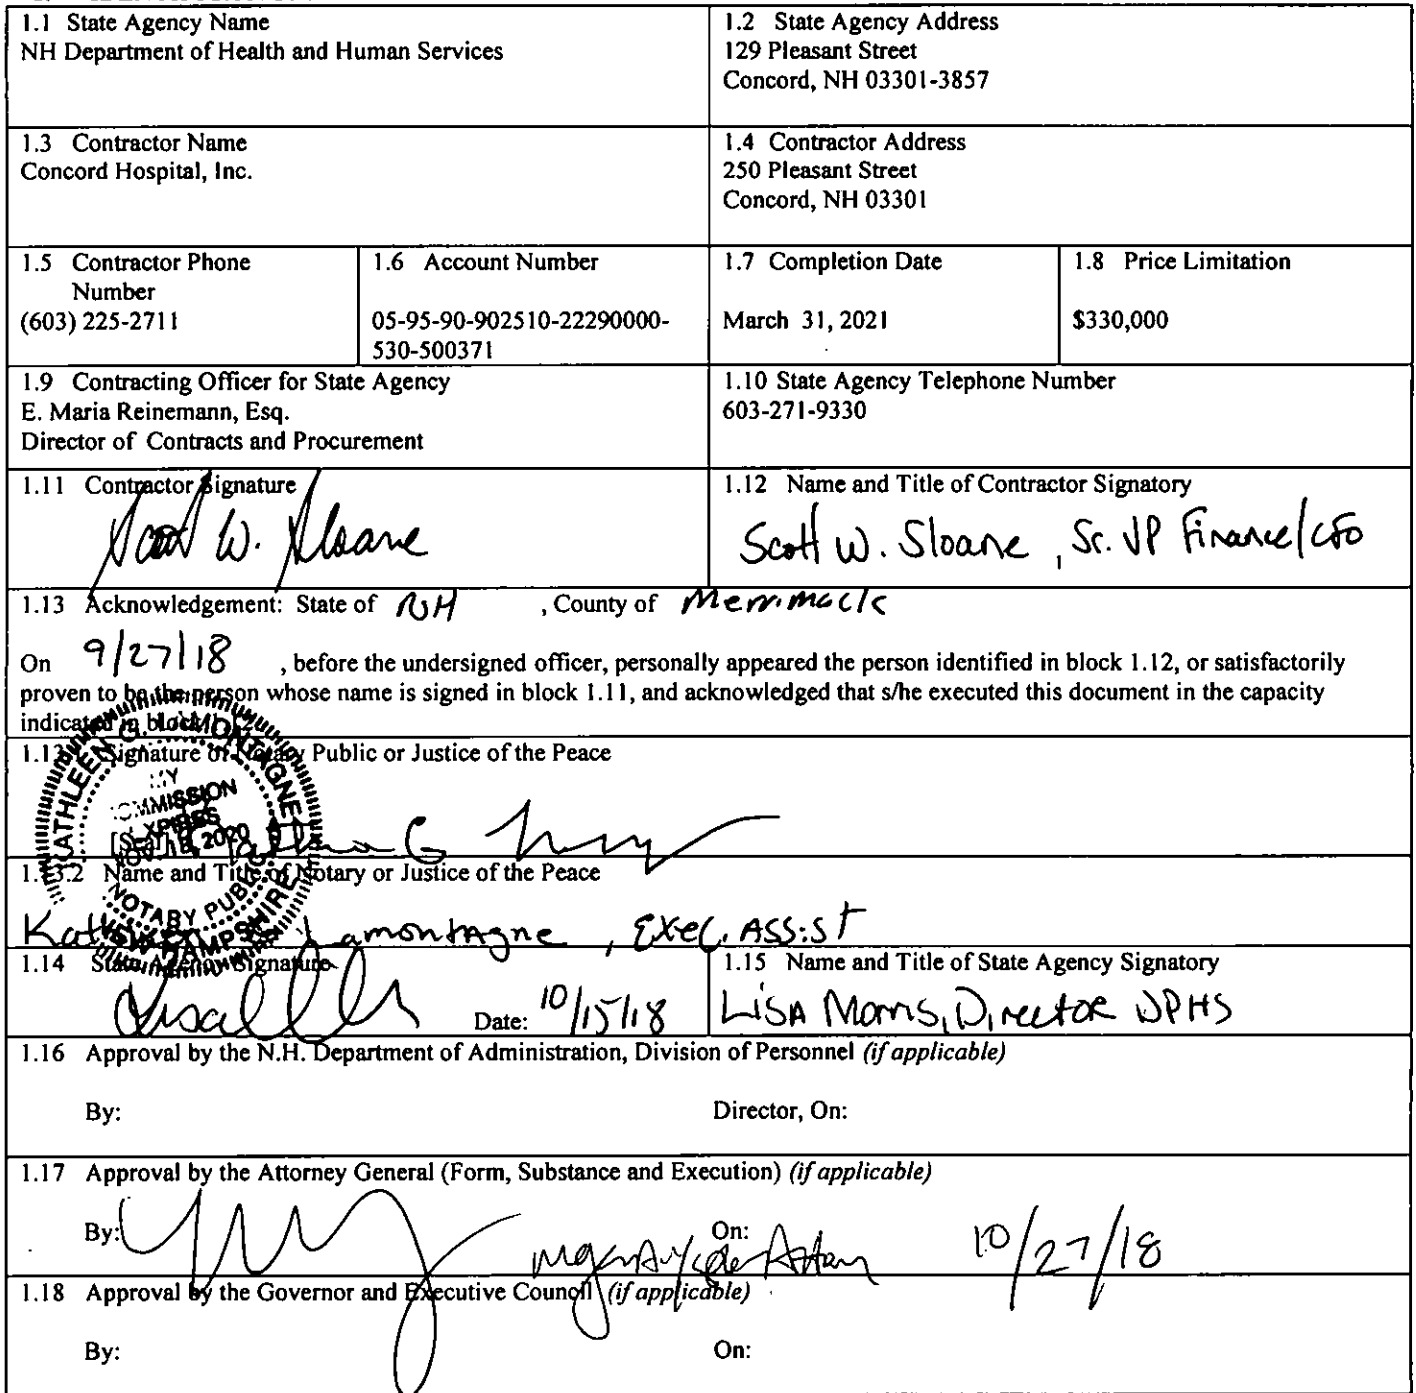 1.1 State Agency Name
NH Department of Health and Human Services
1.2 State Agency Address
129 Pleasant Street
Concord, NH 03301-3857
1.3 Contractor Name
Concord Hospital, Inc.
1.4 Contractor Address
250 Pleasant Street
Concord, NH 03301
1.5 Contractor Phone
Number
(603) 225-2711
1.6 Account Number
05-95-90-902510-22290000-
530-500371
1.7 Completion Date
March 31, 2021
1.8 Price Limitation
$330,000
1.9 Contracting Officer for State Agency
E. Maria Reinemann, Esq.
Director of Contracts and Procurement
1.10 State Agency Telephone Number
603-271-9330
1.11 Contractor Signature
Scott W. Sloane
1.12 Name and Title of Contractor Signatory
Scott W. Sloane, Sr. VP Finance/CFO
1.13 Acknowledgement: State of NH , County of Merrimack
On 9/27/18 , before the undersigned officer, personally appeared the person identified in block 1.12, or satisfactorily
proven to be the person whose name is signed in block 1.11, and acknowledged that s/he executed this document in the capacity
indicated in block 1.12.
1.13.1 Signature of Notary Public or Justice of the Peace
KATHLEEN G. LAMONTAGNE
MY
COMMISSION
EXPIRES
[Seal]
NOTARY PUBLIC
NEW HAMPSHIRE
1.13.2 Name and Title of Notary or Justice of the Peace
Kathleen Lamontagne, Exec. Assist
1.14 State Agency Signature
Date: 10/15/18
1.15 Name and Title of State Agency Signatory
Lisa Morris, Director DPHS
1.16 Approval by the N.H. Department of Administration, Division of Personnel (if applicable)
By: Director, On:
1.17 Approval by the Attorney General (Form, Substance and Execution) (if applicable)
By: On: 10/27/18
1.18 Approval by the Governor and Executive Council (if applicable)
By: On: